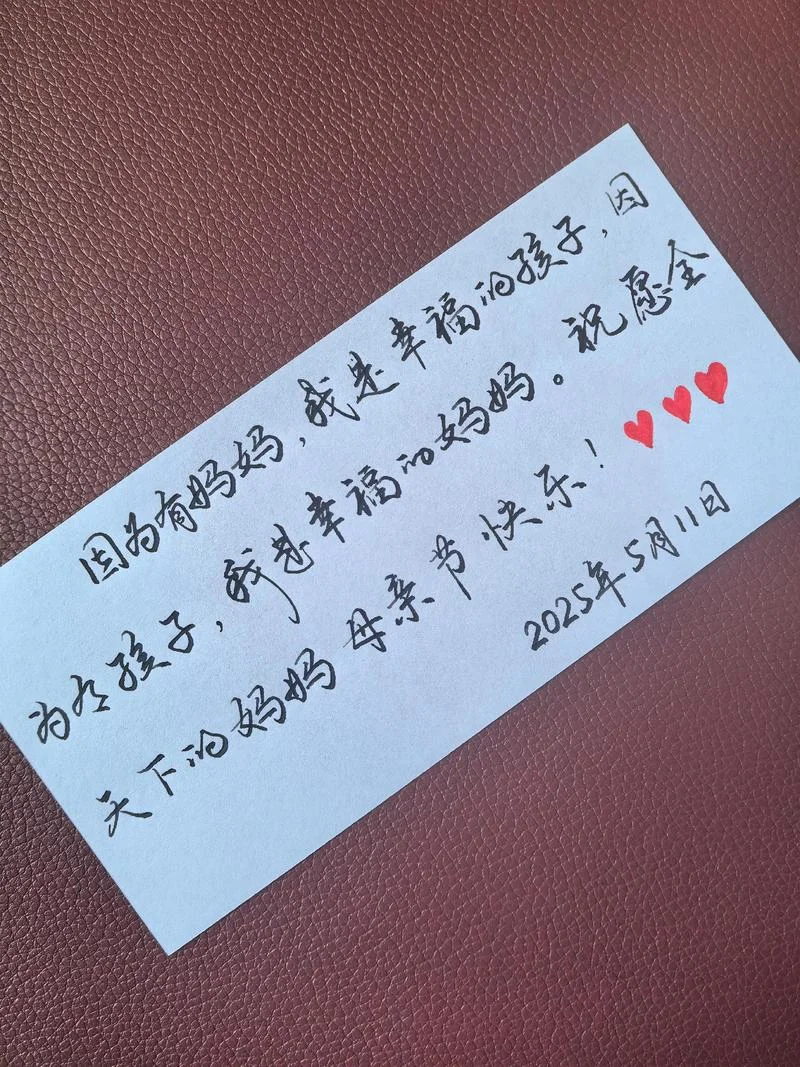 因为有妈妈，我是幸福的孩子，因
为有孩子，我是幸福的妈妈。祝愿全
天下的妈妈母亲节快乐！
2025年5月11日